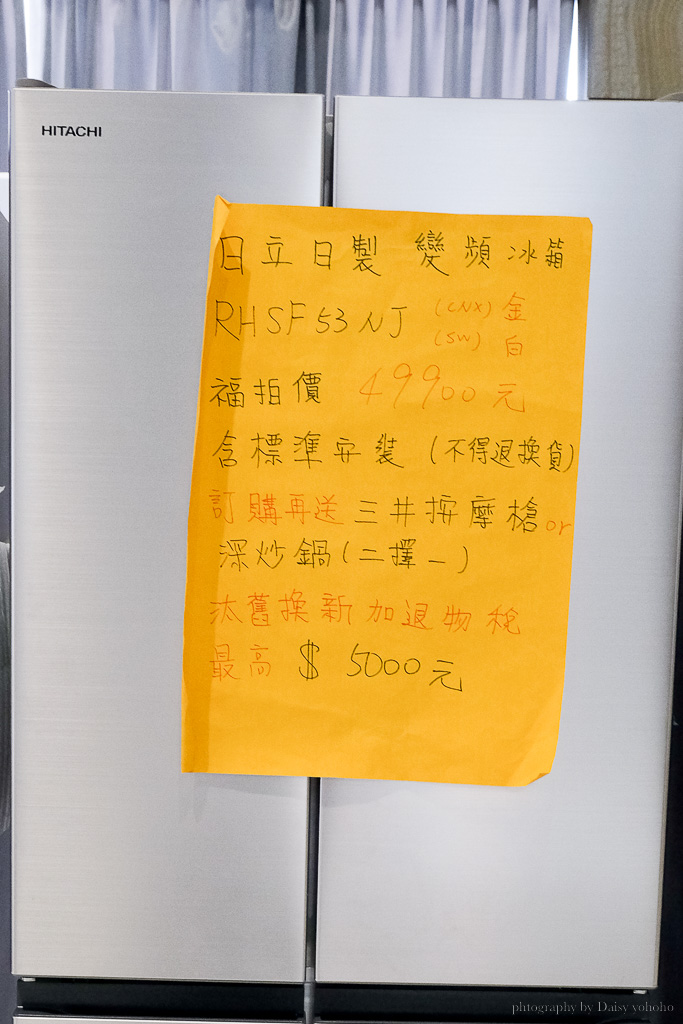 HITACHI
日立日製 變頻冰箱
RHSF53NJ (CNX) 金
(SW) 白
福拍價 49900元
含標準安裝 (不得退換貨)
訂購再送三井按摩槍or
深炒鍋(二擇一)
汰舊換新加退物稅
最高 $ 5000元
phtography by Daisy yohoho